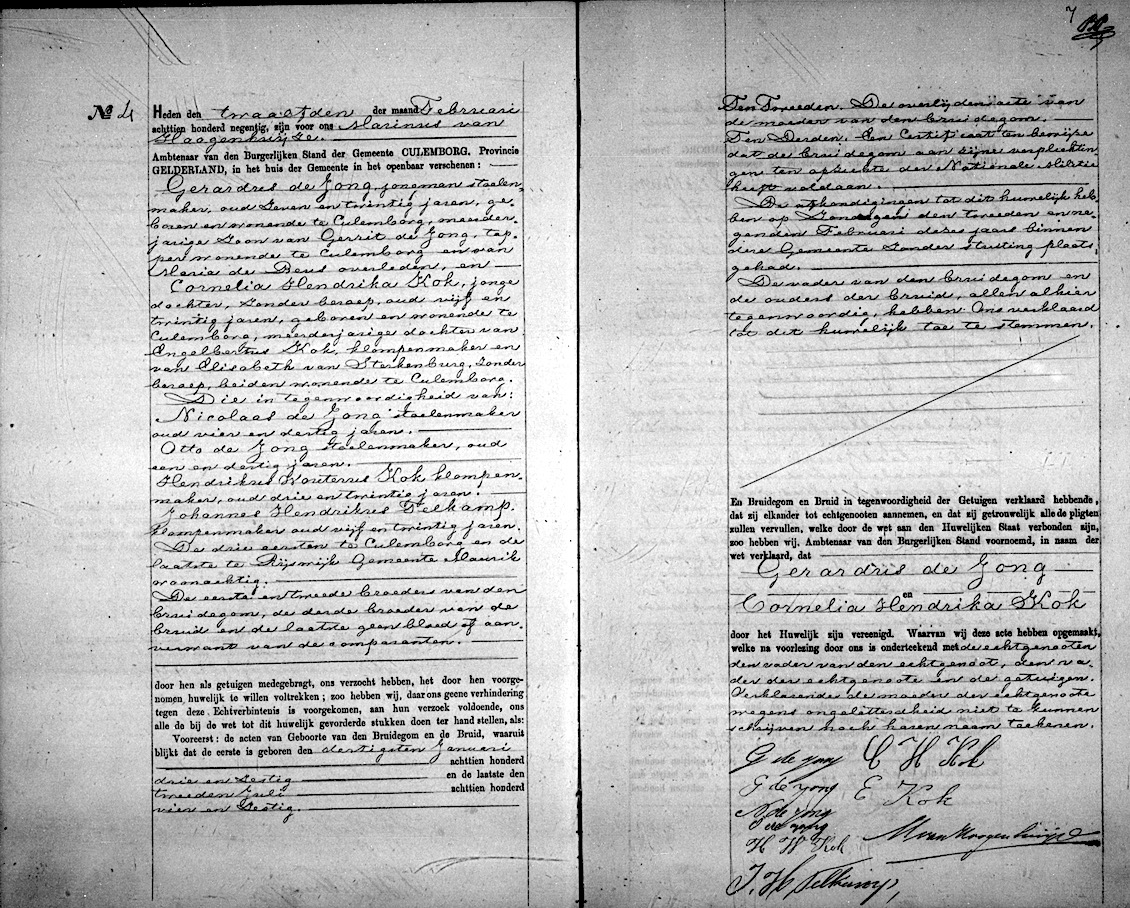 No 4
Heden den twaalfden der maand Februari
achttien honderd negentig, zijn voor ons Marinus van
Hoogenhuijze.
Ambtenaar van den Burgerlijken Stand der Gemeente CULEMBORG, Provincie
GELDERLAND, in het huis der Gemeente in het openbaar verschenen:
Gerardus de Jong, jongman stoelen-
maker, oud zeven en twintig jaren, ge-
boren en wonende te Culemborg, meerder-
jarige zoon van Gerrit de Jong, tap-
per wonende te Culemborg en van
Maria de Beus overleden, en
Cornelia Hendrika Kok, jonge
dochter, zonder beroep, oud vijf en
twintig jaren, geboren en wonende te
Culemborg, meerderjarige dochter van
Engelbertus Kok, klompenmaker en
van Elisabeth van Sterkenburg, zonder
beroep, beiden wonende te Culemborg.
Die in tegenwoordigheid van:
Nicolaas de Jong stoelenmaker
oud vier en dertig jaren.
Otto de Jong stoelenmaker, oud
een en dertig jaren.
Hendrikus Wouterus Kok klompen-
maker, oud drie en twintig jaren.
Johannes Hendrikus Telkamp.
klompenmaker oud vijf en twintig jaren.
De drie eersten te Culemborg en de
laatste te Rijswijk Gemeente Maurik
woonachtig.
De eerste en tweede broeders van den
bruidegom, de derde broeder van de
bruid en de laatste geen bloed of aan-
verwant van de comparanten.
door hen als getuigen medegebragt, ons verzocht hebben, het door hen voorge-
nomen, huwelijk te willen voltrekken; zoo hebben wij, daar ons geene verhindering
tegen deze Echtverbintenis is voorgekomen, aan hun verzoek voldoende, ons
alle de bij de wet tot dit huwelijk gevorderde stukken doen ter hand stellen, als:
Vooreerst: de acten van Geboorte van den Bruidegom en de Bruid, waaruit
blijkt dat de eerste is geboren den dertigsten Januari
achttien honderd
drie en zestig en de laatste den
tweeden Juli achttien honderd
vier en zestig.
7
Ten Tweeden. De overlijdenacte van
de moeder van den bruidegom.
Ten Derden. Een Certificaat ten bewijze
dat de bruidegom aan zijne verplichtin-
gen ten opzichte der Nationale Militie
heeft voldaan.
De afkondigingen tot dit huwelijk heb-
ben op Zondagen den tweeden en ne-
genden Februari dezes jaars binnen
deze Gemeente zonder stuiting plaats
gehad.
De vader van den bruidegom en
de ouders der bruid, allen alhier
tegenwoordig, hebben Ons verklaard
tot dit huwelijk toe te stemmen.
En Bruidegom en Bruid in tegenwoordigheid der Getuigen verklaard hebbende,
dat zij elkander tot echtgenooten aannemen, en dat zij getrouwelijk alle de pligten
zullen vervullen, welke door de wet aan den Huwelijken Staat verbonden zijn,
zoo hebben wij, Ambtenaar van den Burgerlijken Stand voornoemd, in naam der
wet verklaard, dat
Gerardus de Jong
en
Cornelia Hendrika Kok
door het Huwelijk zijn vereenigd. Waarvan wij deze acte hebben opgemaakt,
welke na voorlezing door ons is onderteekend met de echtgenooten
den vader van den echtgenoot, den va-
der der echtgenoote en de getuigen.
Verklarende de moeder der echtgenoote
wegens ongeletterdheid niet te kunnen
schrijven noch haren naam teekenen.
G de Jong C H Kok
G de Jong E Kok
N de Jong
O de Jong
H W Kok M van Hoogenhuijze
J. H Telkamp,